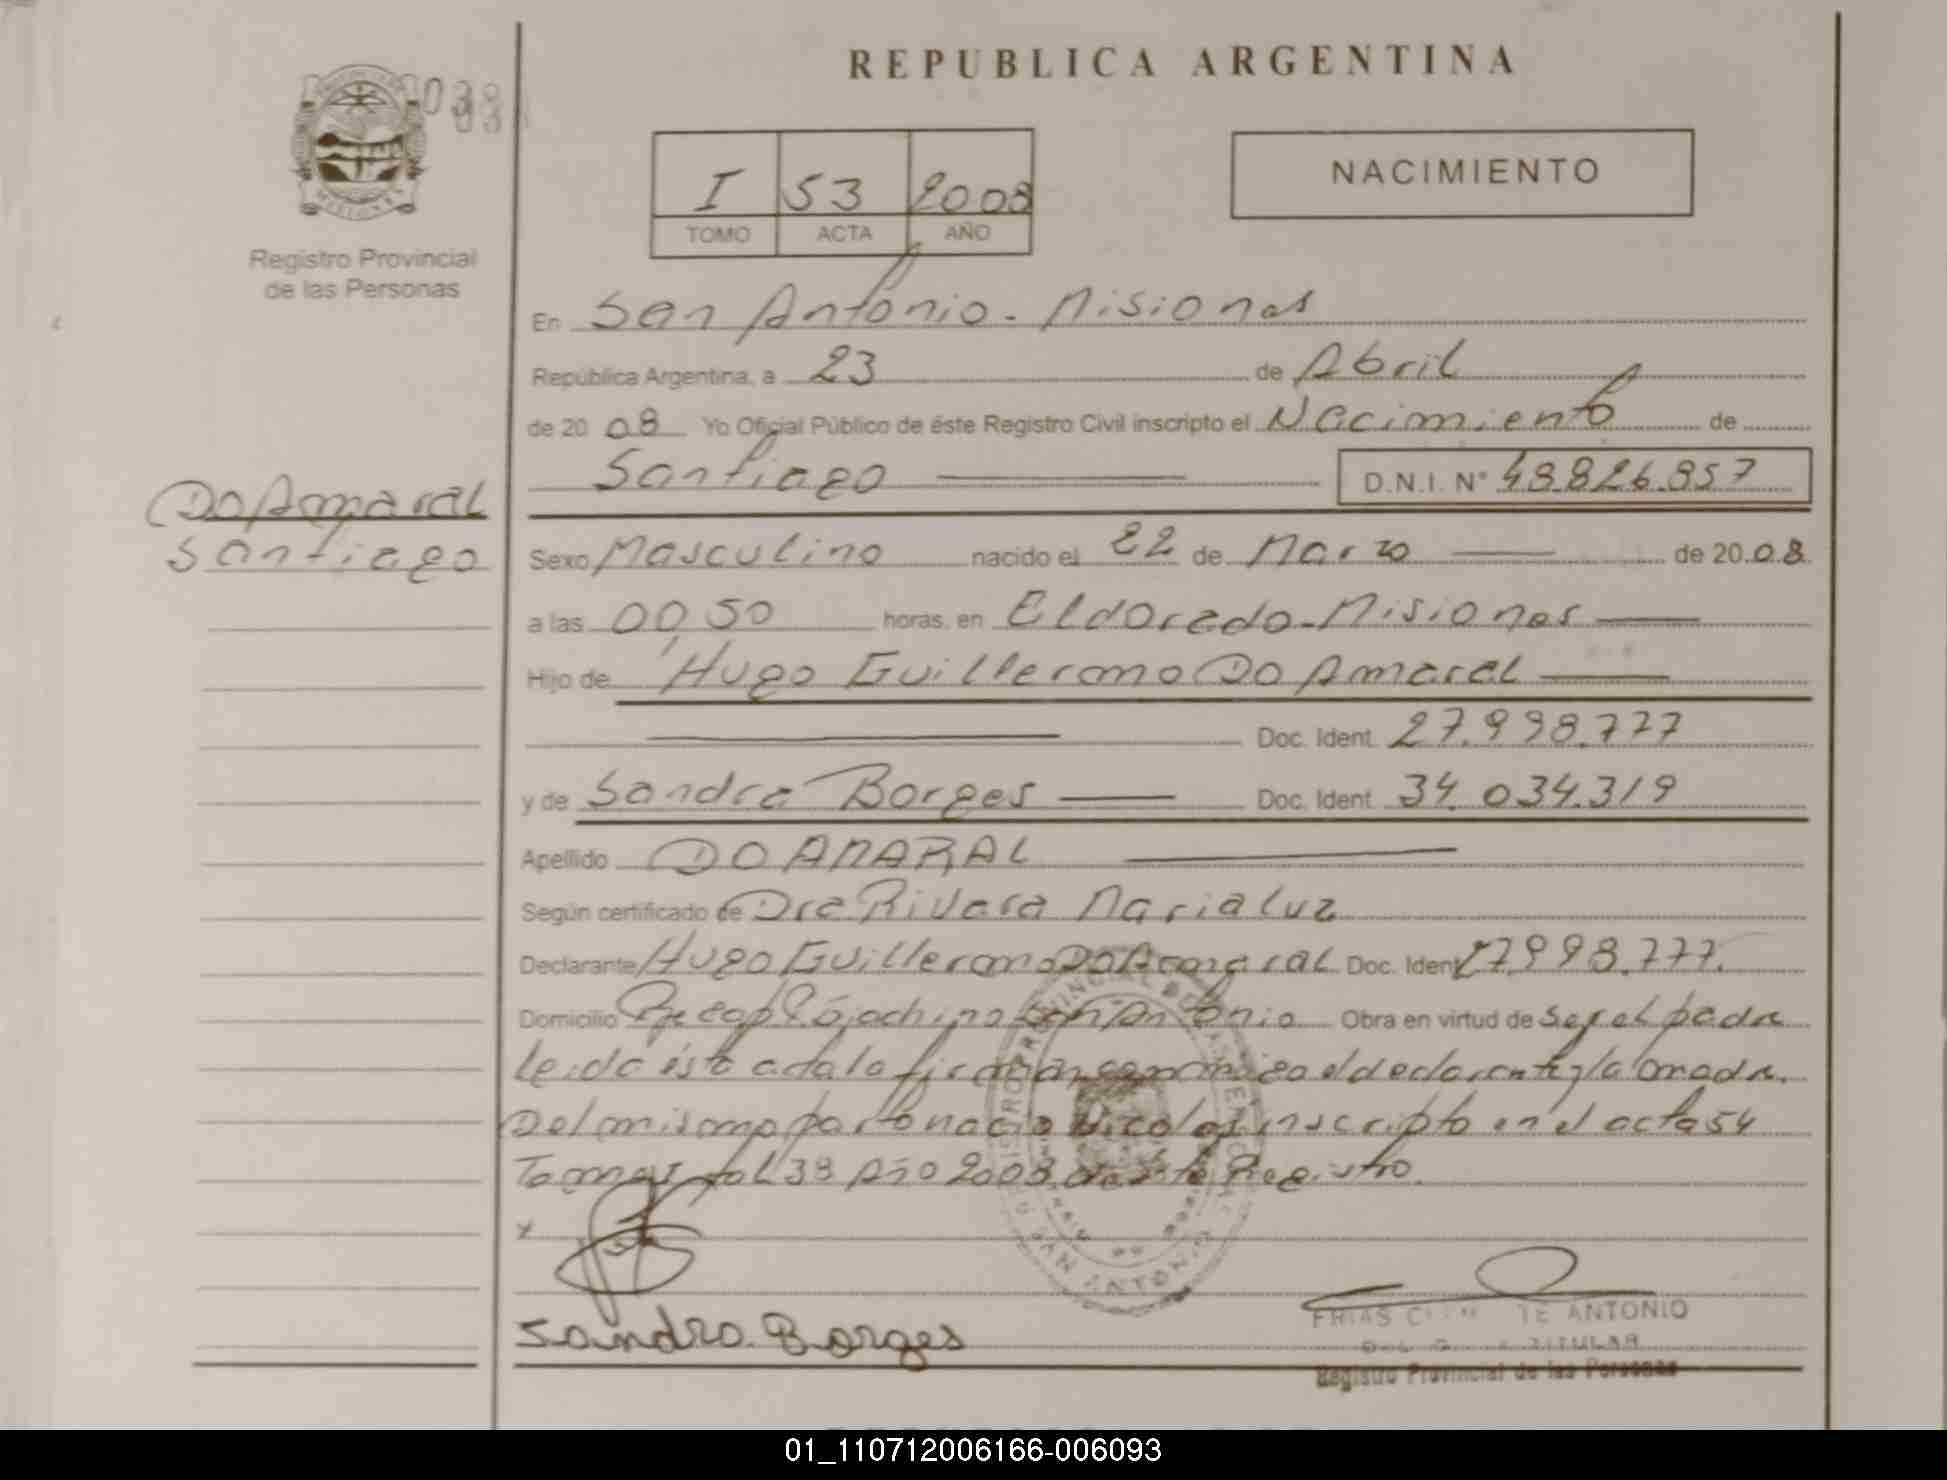 REPUBLICA ARGENTINA
038
MISIONES
Registro Provincial
de las Personas
I 53 2008
TOMO ACTA AÑO
NACIMIENTO
En San Antonio - Misiones
República Argentina, a 23 de Abril
de 2008 Yo Oficial Público de éste Registro Civil inscripto el Nacimiento de
Santiago D.N.I. Nº 48.826.857
Do Amaral
Santiago
Sexo Masculino nacido el 22 de Marzo de 20.08.
a las 00,50 horas, en Eldorado - Misiones
Hijo de Hugo Guillermo Do Amaral
Doc. Ident. 27.998.777
y de Sandra Borges Doc. Ident. 34.034.319
Apellido DO AMARAL
Según certificado de Dra Rivara Maria Luz
Declarante Hugo Guillermo Do Amaral Doc. Ident 27.998.777.
Domicilio San Antonio Obra en virtud de ser el padre
Leida ésta acta la firman conmigo el declarante y la madre.
Del mismo parto nació Nicolas inscripto en el acta 54
Tomo I fol 39 Año 2008 de este Registro.
x
SAN ANTONIO
Sandra Borges
FRIAS ANTONIO
TITULAR
Registro Provincial de las Personas
01_110712006166-006093